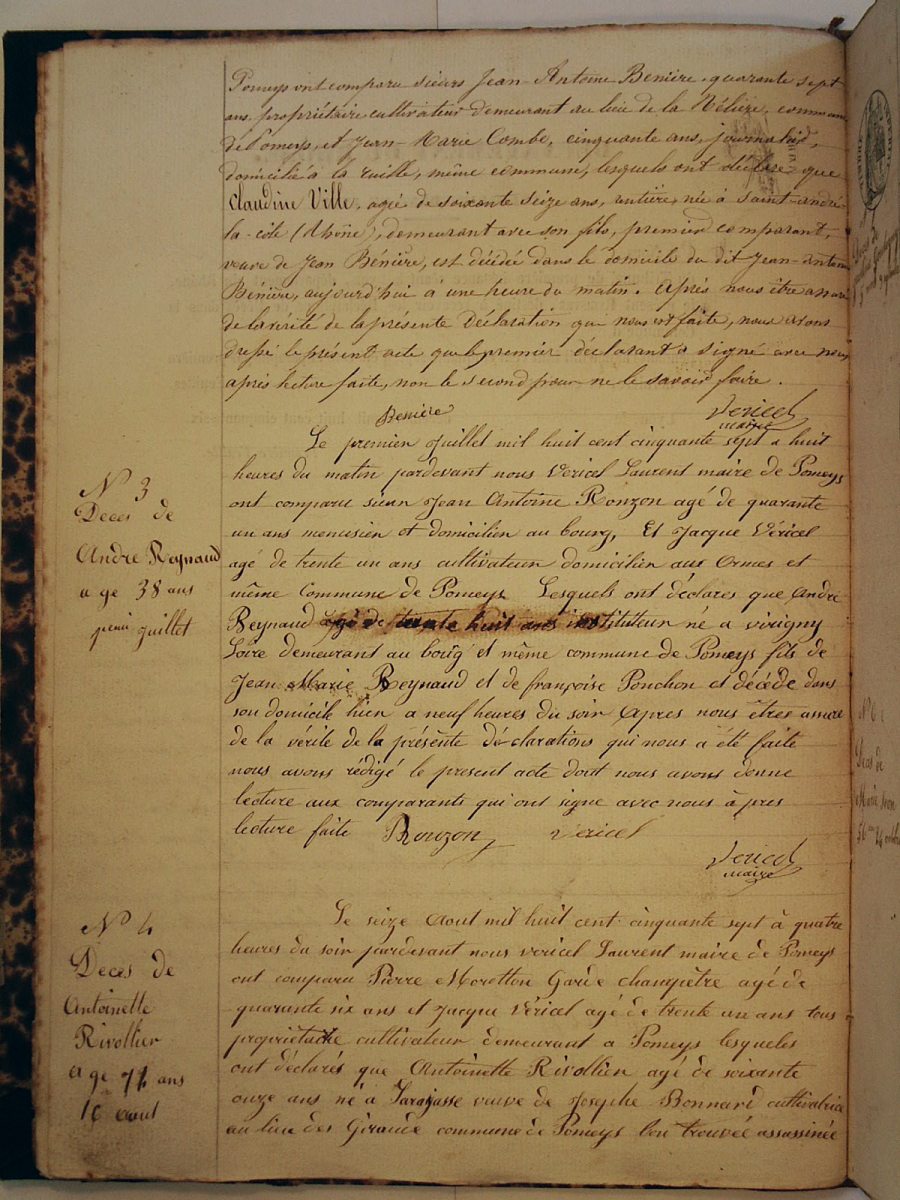 Pomeys ont comparu sieurs Jean-Antoine Benière, quarante sept
ans, propriétaire cultivateur demeurant au lieu de la commune
de Pomeys, et Jean-Marie Combe, cinquante ans, journalier,
domicilié à la ruille, même commune, lesquels ont déclaré que
Claudine Ville, agée de soixante seize ans, née à Saint-andré-
la-côte (Rhône), demeurant avec son fils, premier comparant,
veuve de Jean Bénière, est décédée dans le domicile du dit Jean-antoine
Bénière, aujourd'hui à une heure du matin. après nous être assuré
de la vérité de la présente déclaration qui nous est faite, nous avons
dressé le présent acte que le premier déclarant a signé avec nous
après lecture faite, non le second pour ne le savoir faire.
Benière
Vericel
maire
N° 3
Deces de
Andre Reynaud
a ge 38 ans
juillet
Le premier Juillet mil huit cent cinquante sept a huit
heures du matin pardevant nous Vericel Laurent maire de Pomeys
ont comparu sieur Jean Antoine Ronzon agé de quarante
un ans menuisier et domicilier au bourg, Et Jacque Véricel
agé de trente un ans cultivateur domicilier aux Ormes et
même Commune de Pomeys Lesquels ont déclares que Andre
Reynaud agé de trente huit ans instituteur né a virigny
Loire demeurant au bourg et même commune de Pomeys fils de
Jean Marie Reynaud et de françoise Ponchon et décéde dans
son domicile hier a neuf heures du soir Apres nous êtres assure
de la vérite de la présente déclarations qui nous a été faite
nous avons rédigé le present acte dont nous avons donne
lecture aux comparants qui ont signe avec nous à pres
lecture faite Ronzon Vericel
Vericel
maire
N° 4
Deces de
Antoinette
Rivollier
a ge 71 ans
16 aout
Le seize Aout mil huit cent cinquante sept à quatre
heures du soir pardevant nous vericel Laurent maire de Pomeys
ont comparu Pierre Morotton Garde champêtre agé de
quarante six ans et Jacque Véricel agé de trente un ans tous
propriétaire cultivateur demeurant a Pomeys lesqueles
ont déclarés que Antoinette Rivollier agé de soixante
onze ans né à veuve de Josephe Bonnard cultivatrice
au lieu des Giraude commune de Pomeys trouvée assassinée